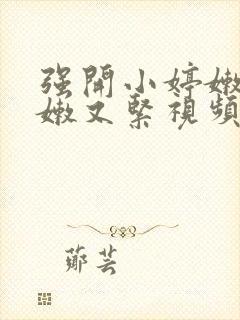 强開小婷嫩
嫩又緊視頻
鄭芸